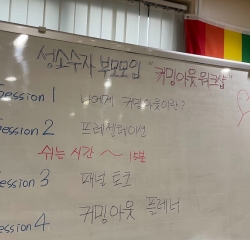 성소수자 부모모임 "커밍아웃 워크샵"
Session 1 나에게 커밍아웃이란?
Session 2 프레젠테이션
쉬는 시간 ~ 15분
Session 3 패널 토크
Session 4 커밍아웃 플래너